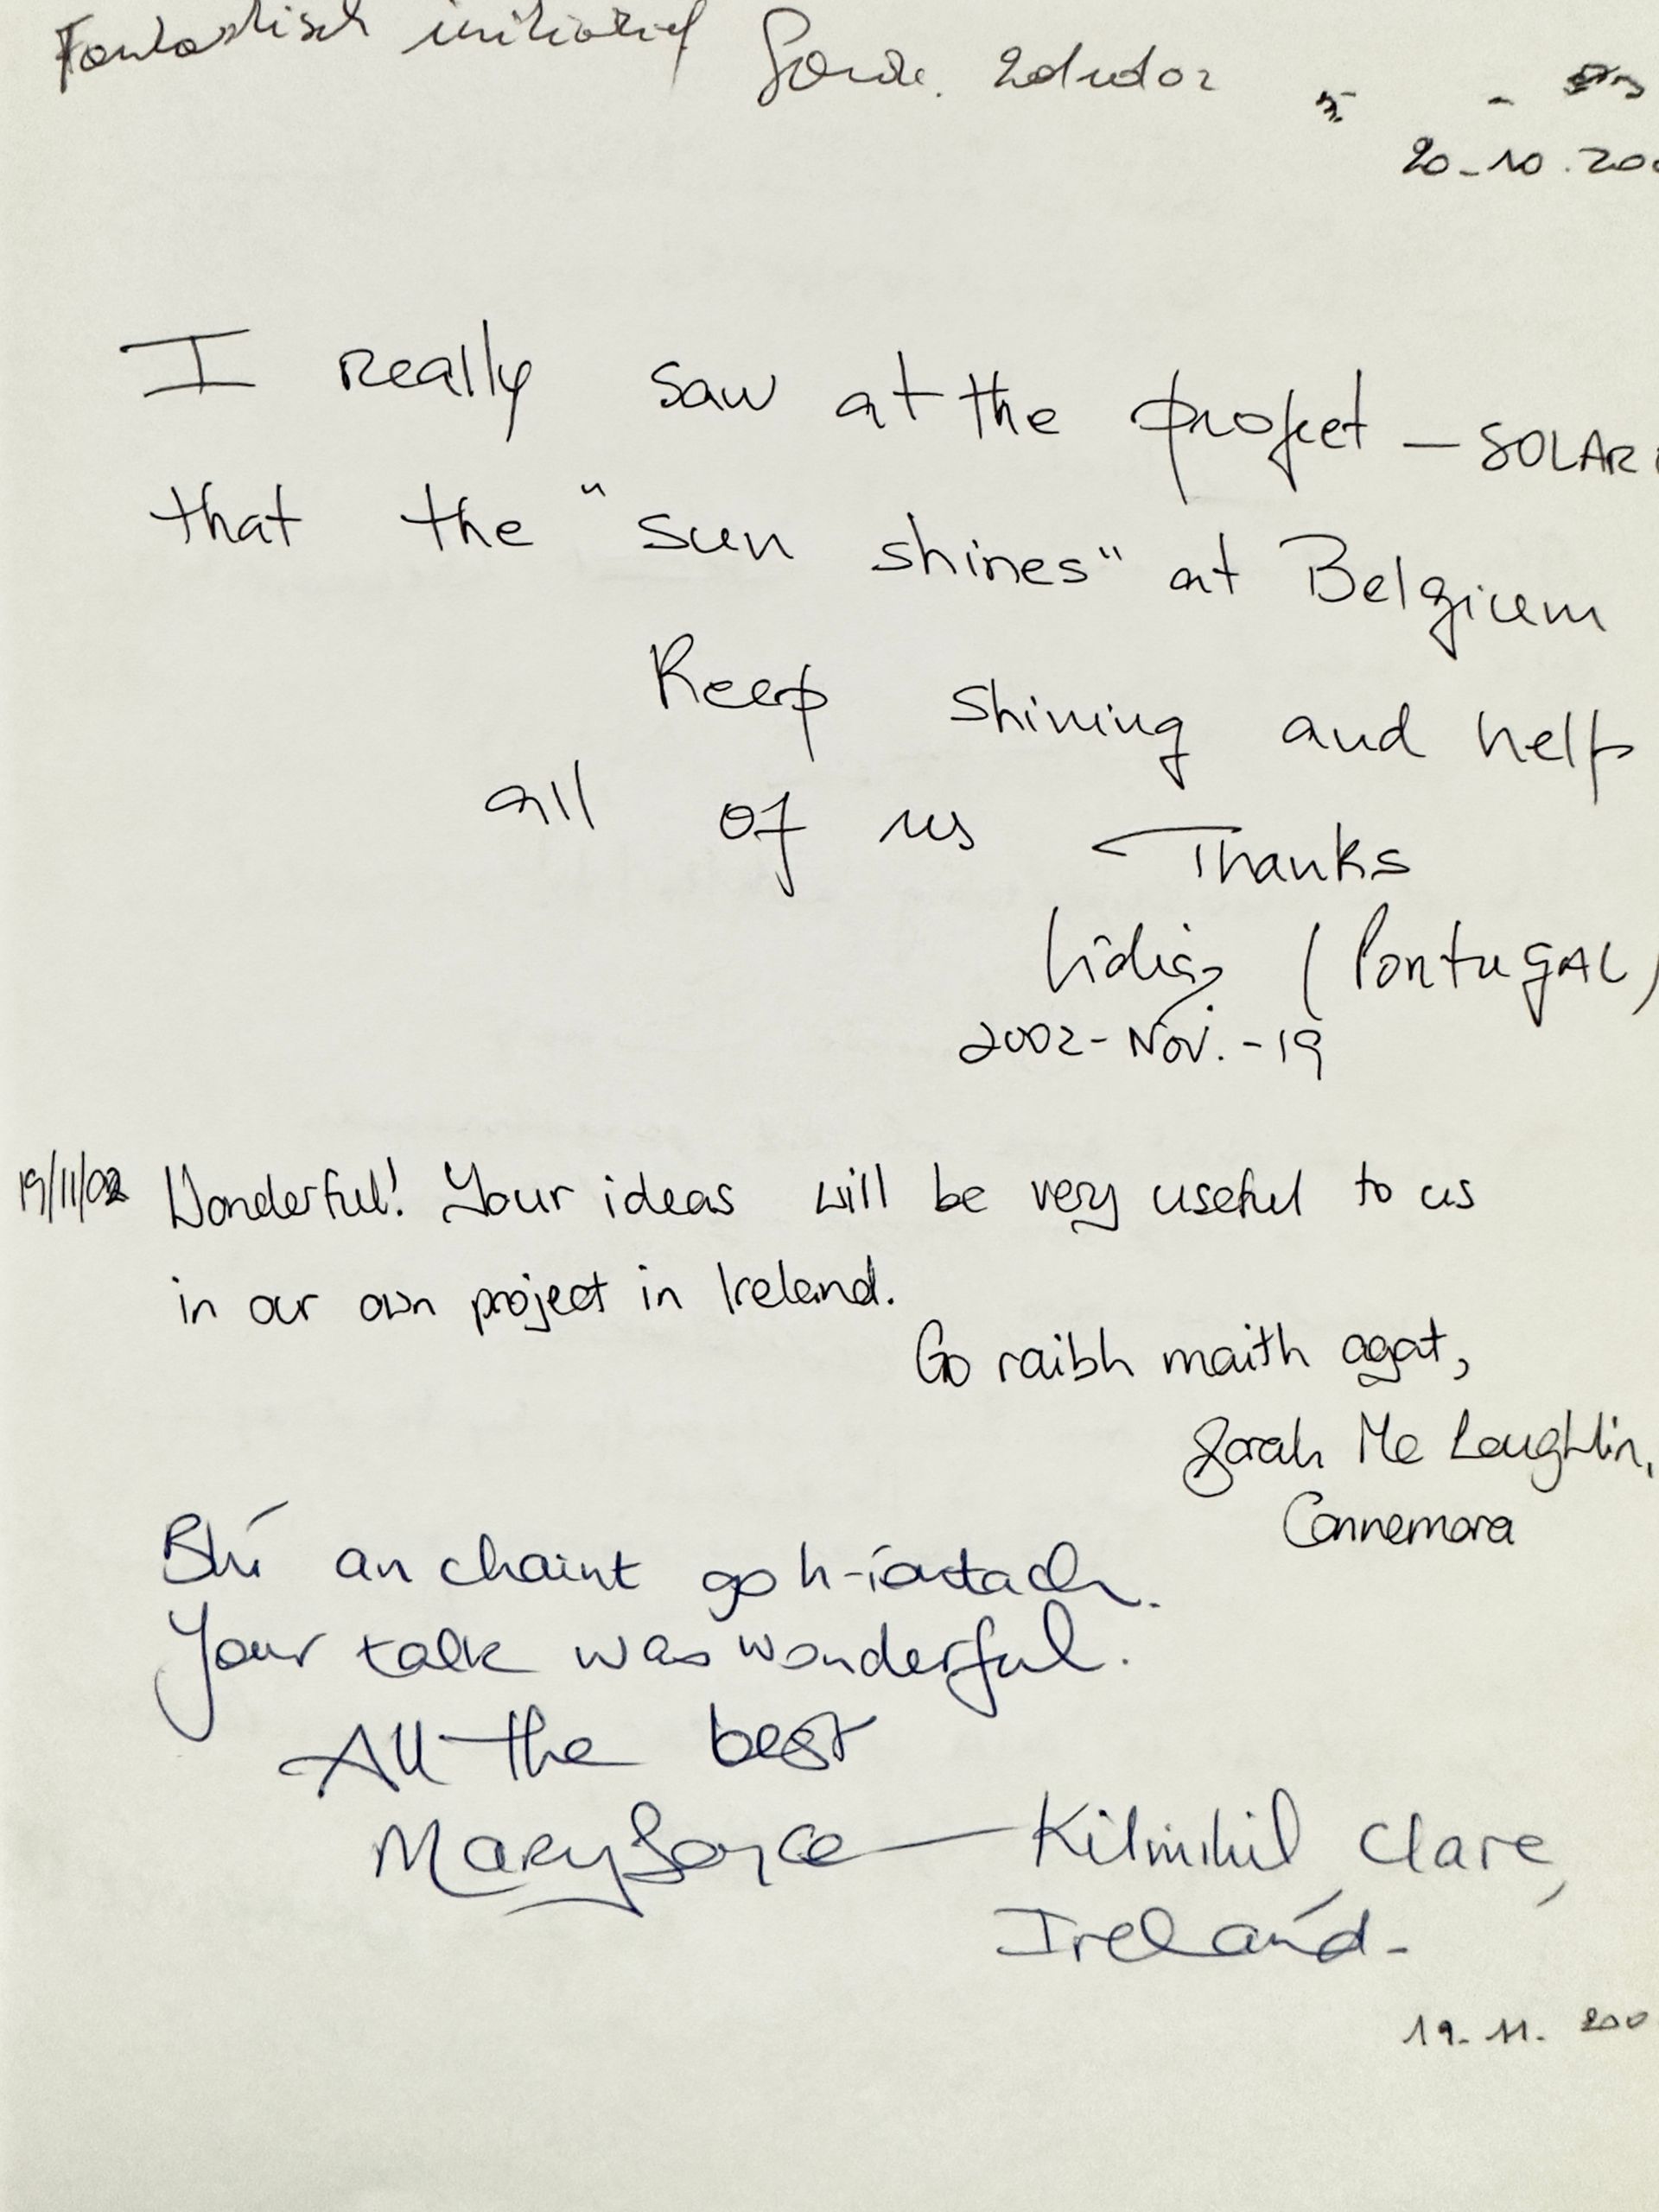 Fantastisch initiatief
20-10.200
I really saw at the project - SOLAR
that the "sun shines" at Belgium
Keep shining and help
all of us Thanks
Lídia (PORTUGAL)
2002-Nov.-19
19/11/02 Wonderful! Your ideas will be very useful to us
in our own project in Ireland.
Go raibh maith agat,
Sarah Mc Loughlin,
Connemara
Bhí an chaint go h-iontach.
Your talk was wonderful.
All the best
Mary Joyce - Kilmihil Clare,
Ireland-
19-11-200